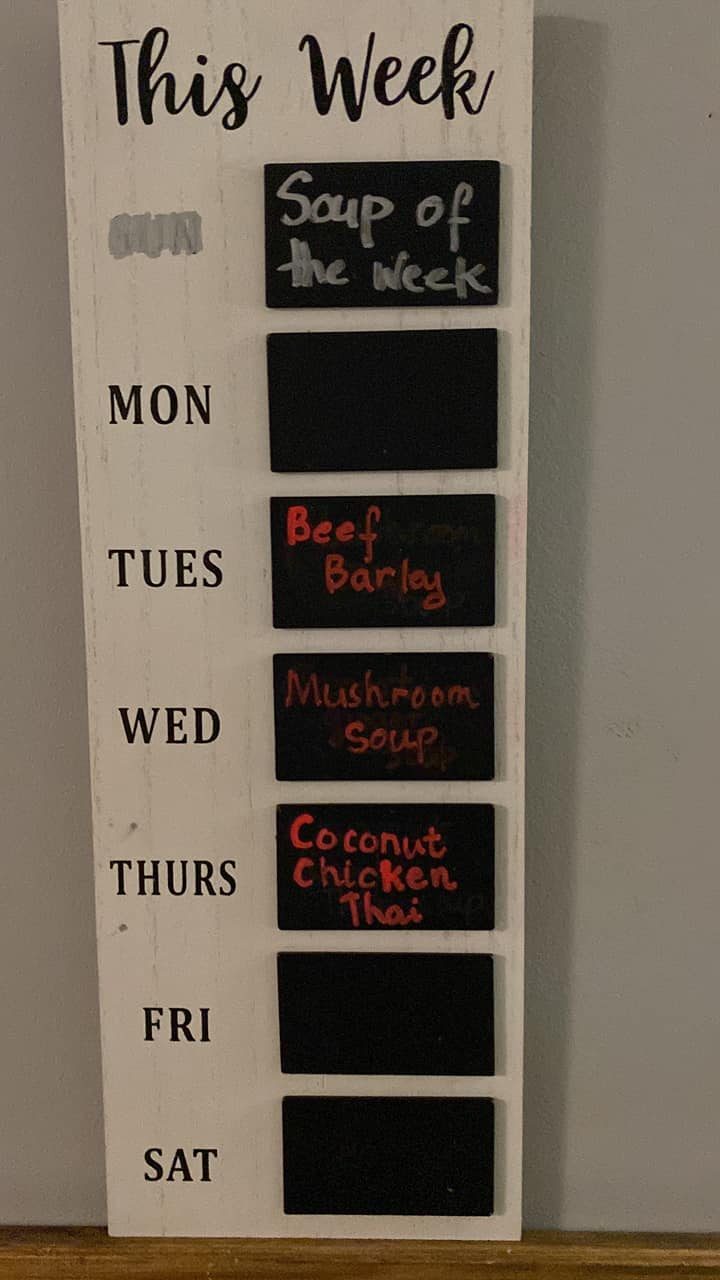 This Week
Soup of
the Week
MON
TUES
Beef
Barley
WED
Mushroom
Soup
THURS
Coconut
Chicken
Thai
FRI
SAT